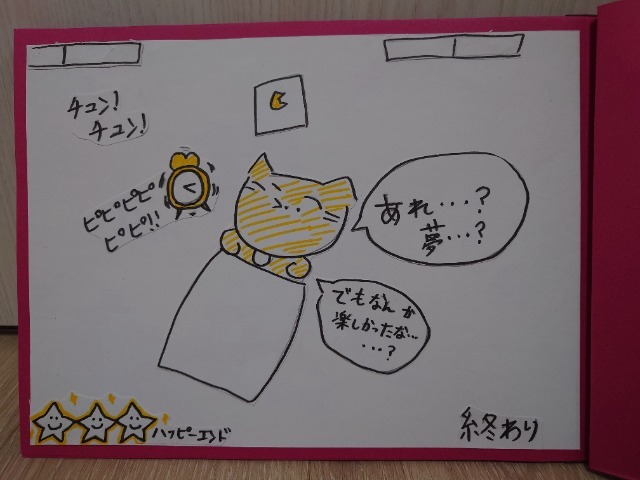 チュン!
チュン!
ピピピピ
ピピ!!
あれ・・・?
夢・・・?
でもなんか
楽しかったな・・・
・・・?
ハッピーエンド
終わり